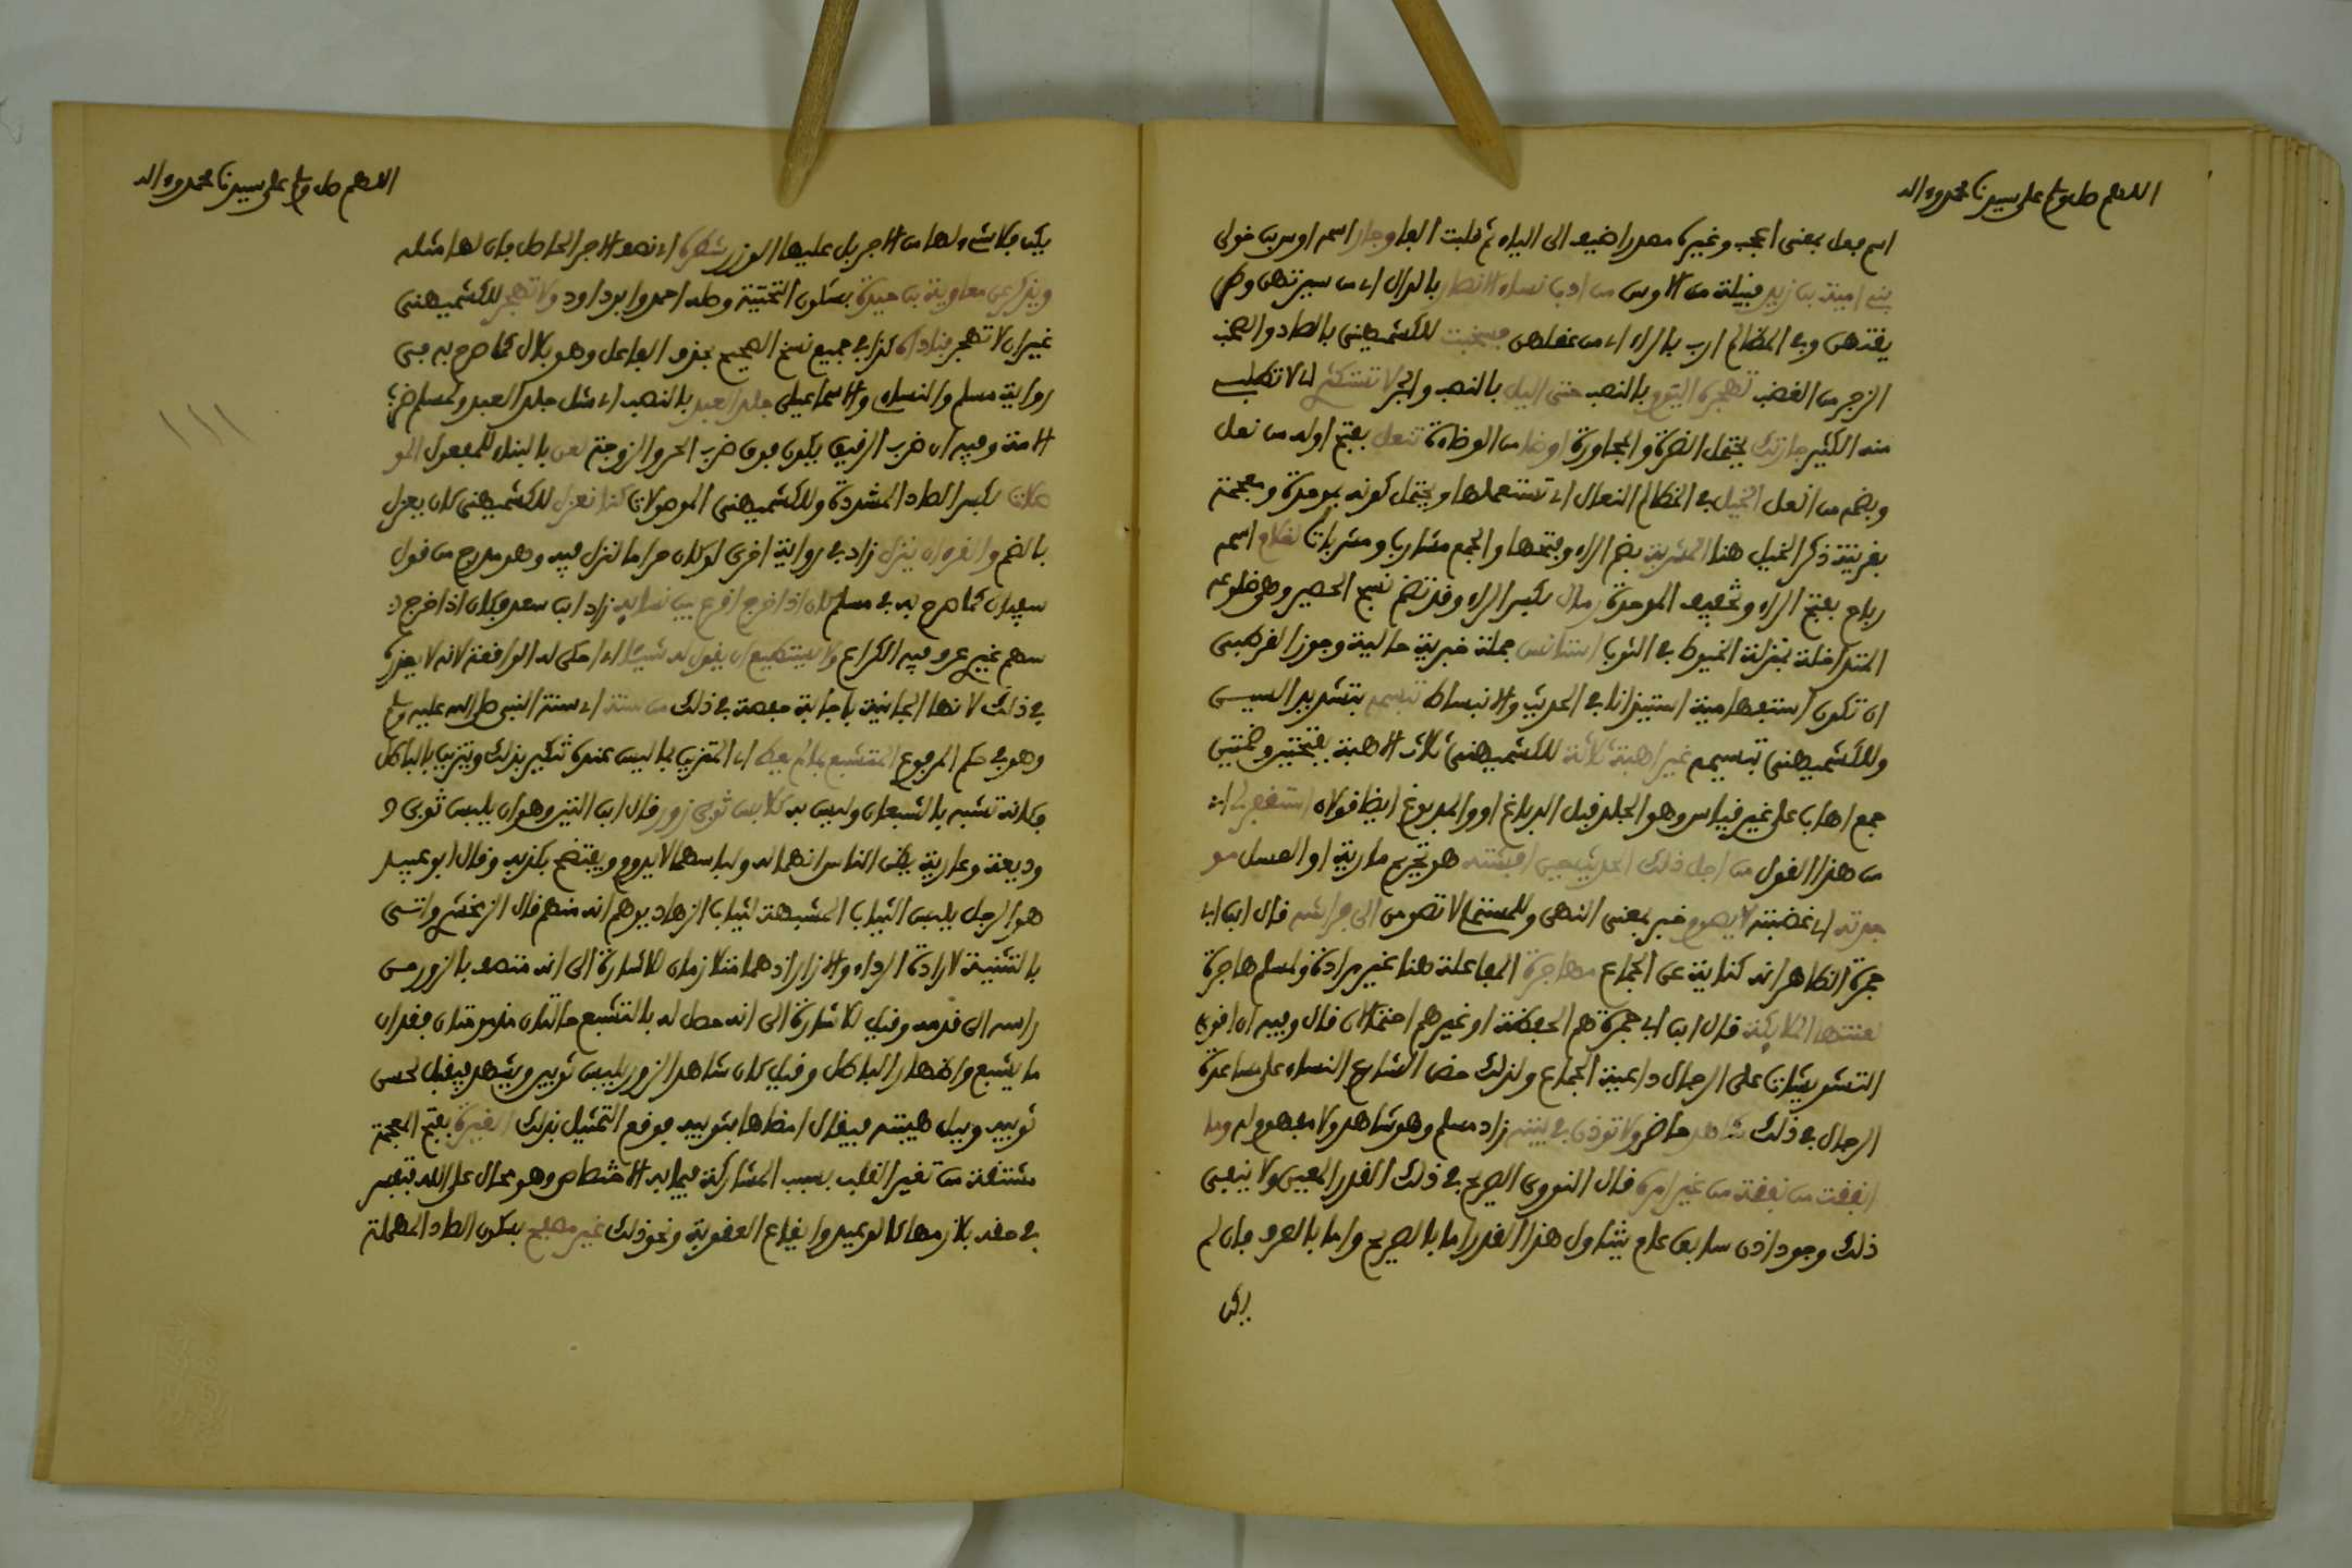 اللهم صل وسلم على سيدنا محمد وءاله
اسم فعل بمعنى اعجب وغيره مصدر اضيف الى الياء ثم قلبت الفا وجار اسمه اوس بن خولى
بنى امية بن زيد قبيلة من الاوس من ادب نساء الانصار بالدال اى من سيرتهن وطر
يقتهن وفى المظالم ارب بالراء اى من عقلهن فصخبت للكشميهنى بالصاد والصخب
الزجر من الغضب لتهجره اليوم بالنصب حتى اليل بالنصب والجر لا تستكثرى اى لا تطلبى
منه الكثير جارتك يحتمل الضرة والمجاورة اوضا من الوضاءة تنعل بفتح اوله من نعل
وبضمه من انعل الخيل فى المظالم النعال اى تستعملها ويحتمل كونه بموحدة ومعجمة
بقرينة ذكر الخيل هنا المشربة بضم الراء وفتحها والجمع مشارب ومشربات لغلام اسمه
رباح بفتح الراء وتخفيف الموحدة رمال بكسر الراء وقد تضم نسج الحصير وهى ضلوعه
المتداخلة بمنزلة الخيوط فى الثوب استانس جملة خبرية حالية وجوز القرطبى
ان تكون استفهامية استيذانا فى الحديث والانبساط تبسمه بتشديد السين
وللكشميهنى تبسيمه غير اهبة ثلاثة للكشميهنى ثلاث الاهبة بفتحتين وضمتين
جمع اهاب على غير قياس وهو الجلد قبل الدباغ او والمدبوغ ايضا قولان استغفر لى اى
من هذا القول من اجل ذلك الحديث حين افشته هو تحريم مارية او العسل مو
جدته اى غضبته لا يصوم خبر بمعنى النهى وللمستملى لا تصومن الى فراشه قال ابن ابى
جمرة الظاهر انه كناية عن الجماع مهاجرة المفاعلة هنا غير مرادة ولمسلم هاجرة
لعنتها الملائكة قال ابن ابى جمرة هم الحفظة او غيرهم احتمالان قال وفيه ان اقوى
التشويشات على الرجال داعية الجماع ولذلك حض الشارع النساء على مساعدة
الرجال فى ذلك شاهد حاضر ولا توذن فى بيته زاد مسلم وهو شاهد ولا مفهوم له وما
انفقت من نفقة من غير امره قال النووى الصريح فى ذلك القدر المعين ولا ينفى
ذلك وجود اذن سابق عام يتناول هذا القدر اما بالصريح واما بالعرف فان لم
يكن
اللهم صل وسلم على سيدنا محمد وءاله
يكن فلا شىء لها من الاجر بل عليها الوزر شطره اى نصف الاجر الحاصل فان لها مثله
ويذكر عن معاوية بن حيدة بسكون التحتية وصله احمد وابو داود ولا تهجر للكشميهنى
غير ان لا تهجر فناداه كذا فى جميع نسخ الصحيح بحذف الفاعل وهو بلال كما صرح به فى
رواية مسلم والنساءى والاسماعيلى جلد العبد بالنصب اى مثل جلد العبد ولمسلم ضرب
الامة وفيه ان ضرب الرقيق يكون فوق ضرب الحر والزوجة لعن بالبناء للمفعول المو
صلات بكسر الصاد المشددة وللكشميهنى الموصولات كنا نعزل للكشميهنى كان يعزل
بالضم والقرءان ينزل زاد فى رواية اخرى لو كان حراما لنزل فيه وهو مدرج من قول
سفيان كما صرح به فى مسلم كان اذا خرج اقرع بين نسائه زاد ابن سعد فكان اذا خرج
سهم غيرى عرف فيه الكراع ولا يستطيع ان يقول له شيئا اى احكى له الواقعة لانه لا يعذرها
فى ذلك لانها الجانية باجابة حفصة فى ذلك من سنة اى سنة النبى صلى الله عليه وسلم
وهو فى حكم المرفوع المتشبع بما لم يعط اى المتزين بما ليس عنده تكثير بذلك وتزين بالباطل
فكانه تشبه بالشبعان وليس به كلابس ثوبى زور قال ابن التين هو ان يلبس ثوبى و
وديعة وعارية يظن الناس انهما له ولباسهما لا يدوم ويفتضح بكذبه وقال ابو عبيد
هو الرجل يلبس الثياب المشبهة لثياب الزهاد يوهم انه منهم قال الزمخشرى واتى
بالتثنية لارادة الرداء والازار اذ هما متلازمان للاشارة الى انه متصف بالزور من
راسه الى قدمه وقيل للاشارة الى انه حصل له بالتشبع حالتان مذمومتان فقدان
ما يشبع واظهار الباطل وقيل كان شاهد الزور يلبس ثوبين ويشهد فيقبل لحسن
ثوبيه ونبل هيئته فيقال امضاها بثوبيه فوقع التمثيل بذلك الغيرة بفتح المعجمة
مشتقة من تغير القلب بسبب المشاركة فيما به الاختصاص وهو محال على الله فتفسر
فى حقه بلازمها كالوعيد وايقاع العقوبة ونحو ذلك غير مصفح بسكون الصاد المهملة